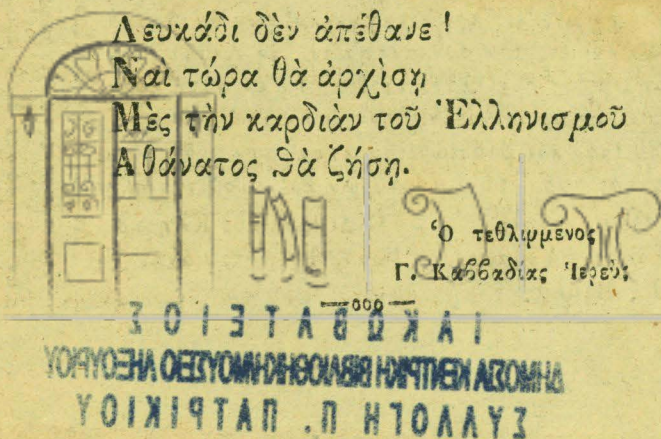 Λευκάδι δὲν ἀπέθανε!
Ναὶ τώρα θὰ ἀρχίσῃ
Μὲς τὴν καρδιὰν τοῦ Ἑλληνισμοῦ
Ἀθάνατος θὰ ζήσῃ.
Ὁ τεθλιμμένος
Γ. Καββαδίας Ἱερεύς
ΙΑΚΩΒΑΤΕΙΟΣ
ΔΗΜΟΣΙΑ ΚΕΝΤΡΙΚΗ ΒΙΒΛΙΟΘΗΚΗ ΜΟΥΣΕΙΟ ΛΗΞΟΥΡΙΟΥ
ΣΥΛΛΟΓΗ Π. ΠΑΤΡΙΚΙΟΥ